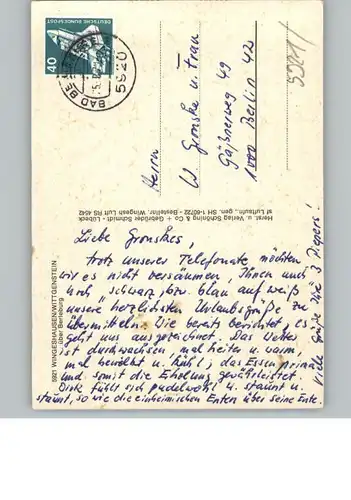 DEUTSCHE BUNDESPOST
40
BAD BE
5920
59211
Herrn
W Gronske u. Frau
Gäßnerweg 49
1000 Berlin 42
Herst. u. Verlag Schöning & Co + Gebrüder Schmidt - Lübeck
sf Luftaufn., gen. SH 1-60722 - Bestellnr. Wingesh Luft RS 4542
5921 WINGESHAUSEN/WITTGENSTEIN
über Berleburg
Liebe Gronskes,
trotz unserer Telefonate möchten
wir es nicht versäumen, Ihnen auch
noch schwarz, bzw. blau auf weiß
unsere herzlichsten Urlaubsgrüße zu
übermitteln. Wie bereits berichtet, es
geht uns ausgezeichnet. Das Wetter
ist durchwachsen, mal heiter u. warm,
mal bewölkt u. kühl; das Essen prima
und somit die Erholung gewährleistet.
Dirk fühlt sich pudelwohl u. staunt u.
staunt, so wie die einheimischen Enten über seine Ente.
Viele Grüße Ihre 3 Piepers!